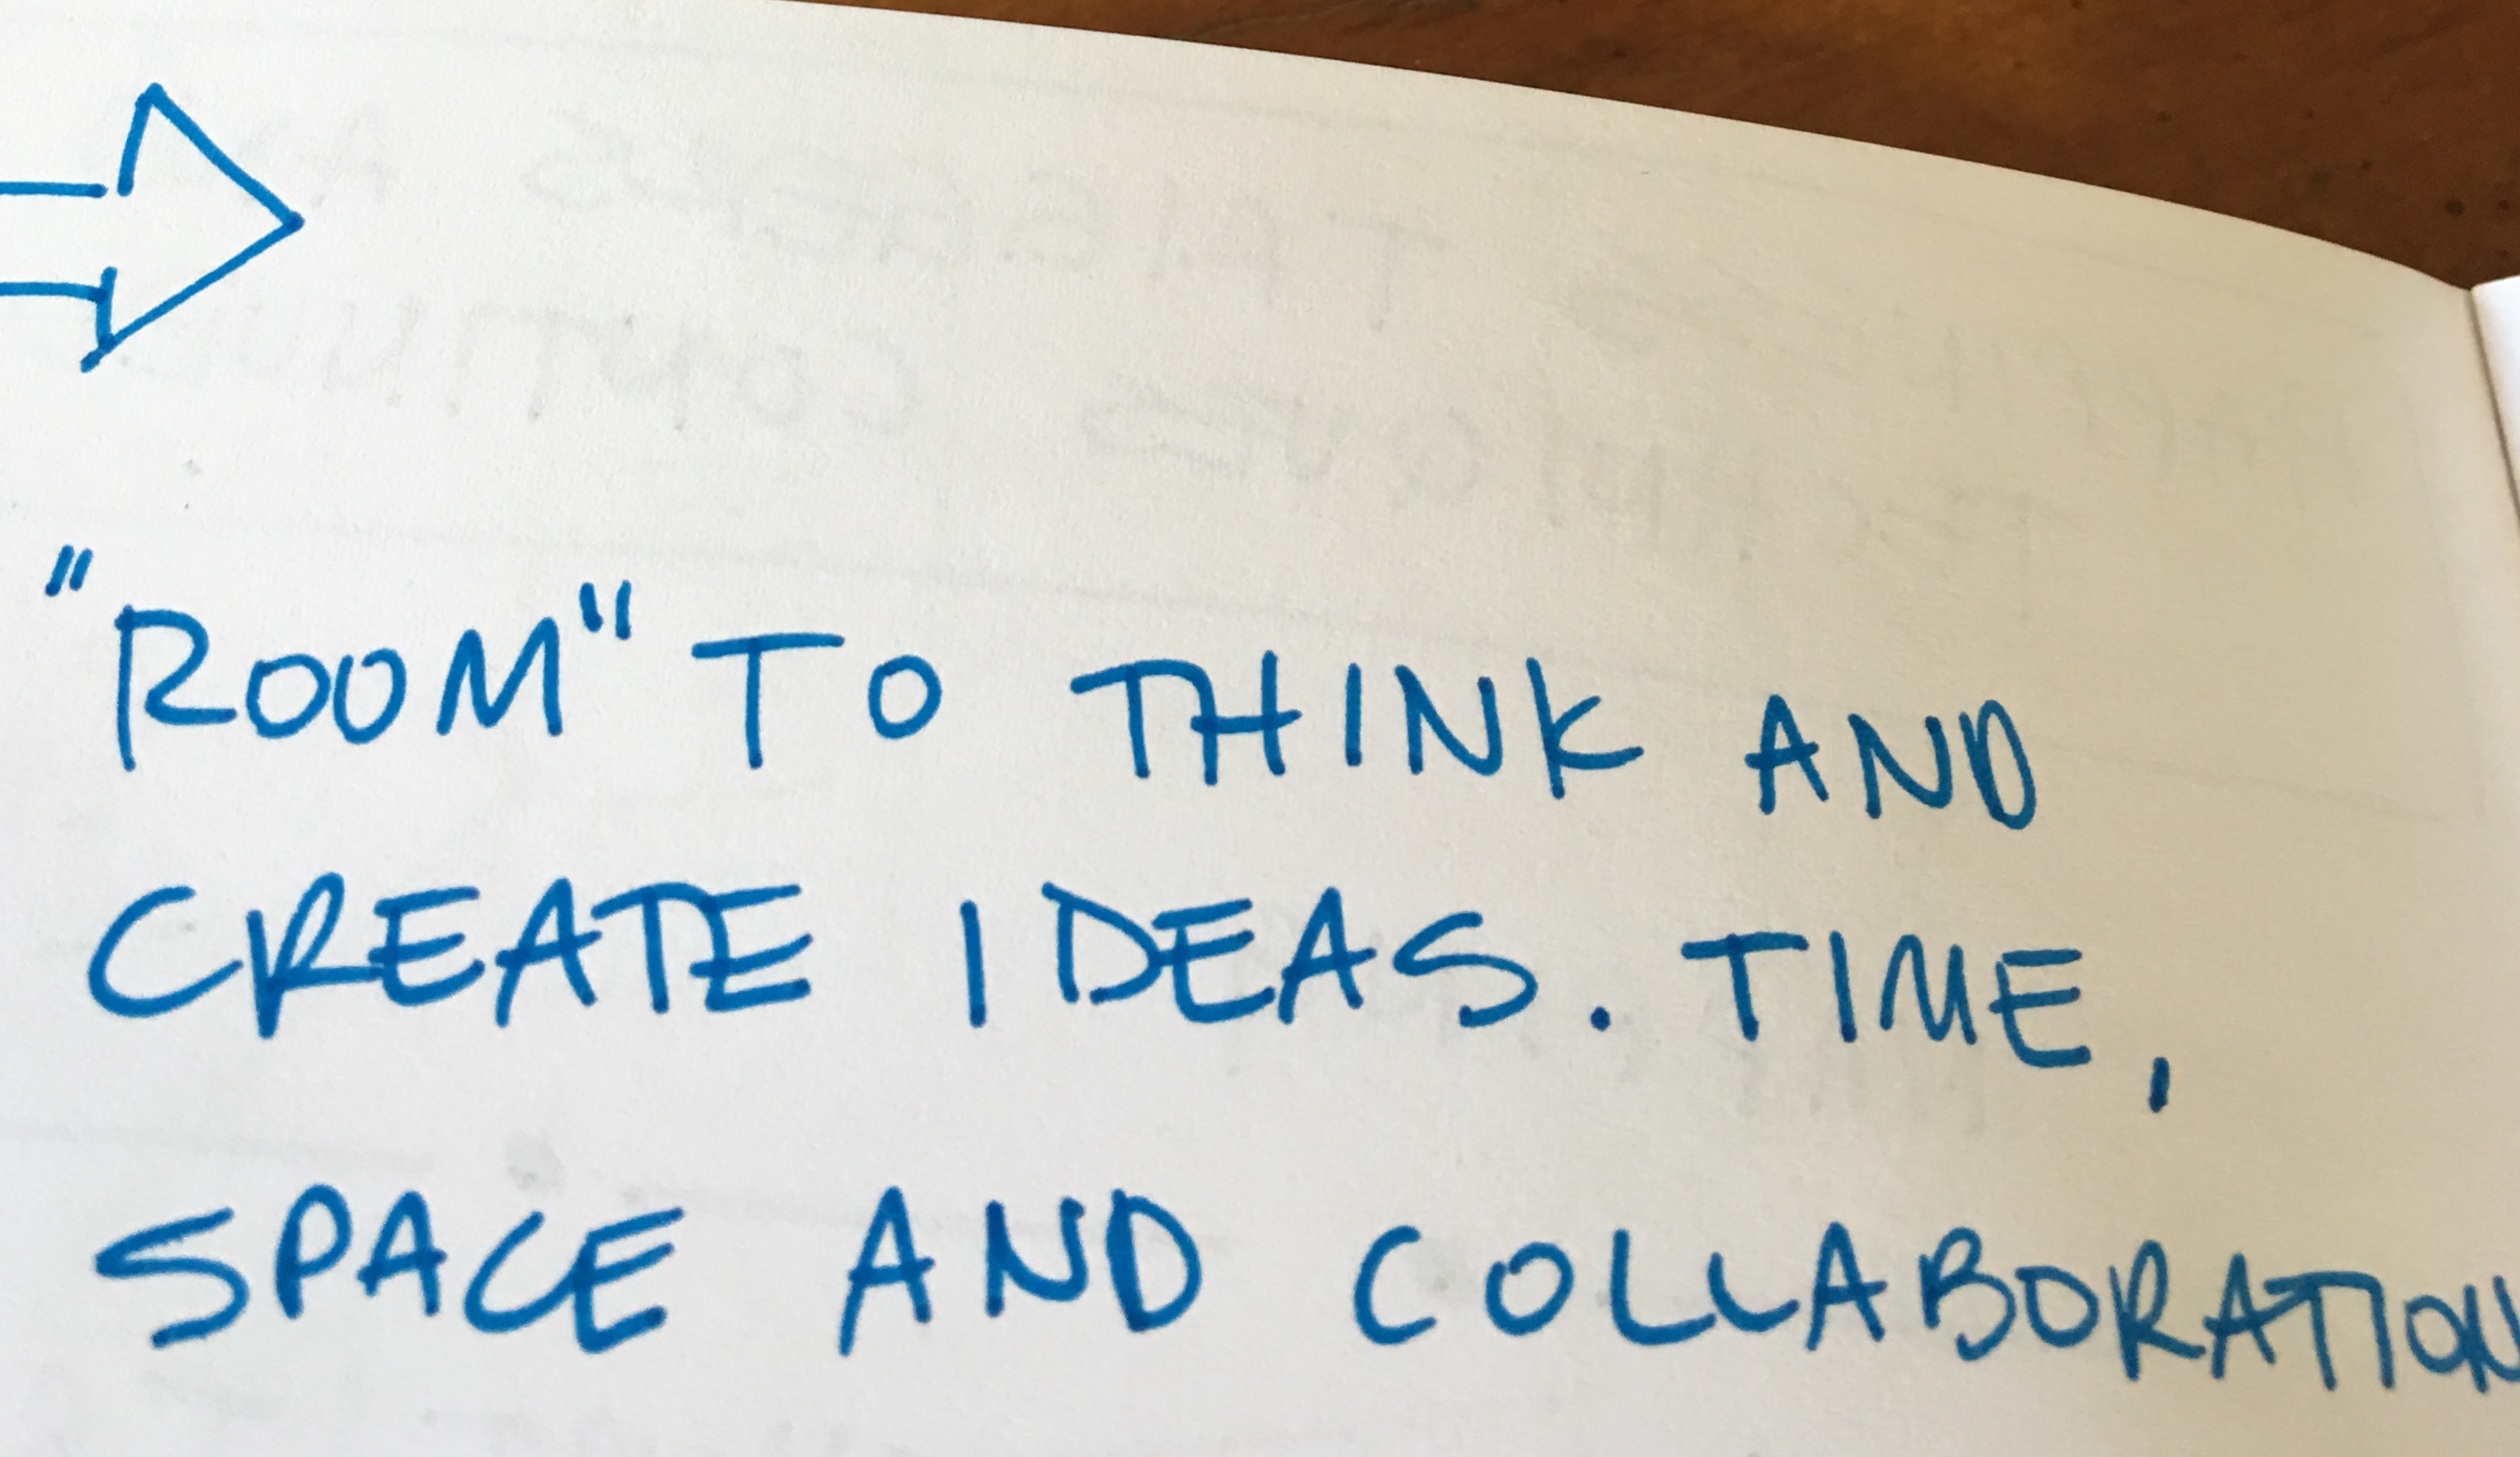 "ROOM" TO THINK AND
CREATE IDEAS. TIME,
SPACE AND COLLABORATION